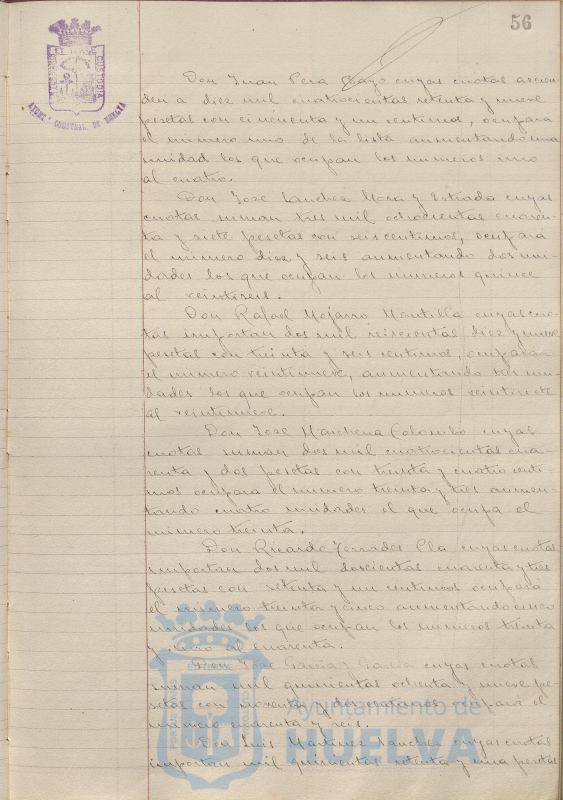 56
AYUNT. CONSTNAL. DE HUELVA
Don Juan Pera Gazo cuyas cuotas ascien-
den a diez mil cuatrocientas setenta y nueve
pesetas con cincuenta y un centimos, ocupara
el numero uno de la lista aumentando una
unidad los que ocupan los numeros uno
al cuatro.
Don José Sanchez Mora y Estrada cuyas
cuotas suman tres mil ochocientas cuaren-
ta y siete pesetas con seis centimos, ocupará
el numero diez y seis aumentando dos uni-
dades los que ocupan los numeros quince
al veintiseis.
Don Rafael Mojarro Mantilla cuyas cuo-
tas importan dos mil seiscientas diez y nueve
pesetas con treinta y seis centimos, ocupará
el numero veintinueve, aumentando tres uni-
dades los que ocupan los numeros veintisiete
al veintinueve.
Don José Marchena Colombo cuyas
cuotas suman dos mil cuatrocientas cua-
renta y dos pesetas con treinta y cuatro centi-
mos ocupara el numero treinta y tres aumen-
tando cuatro unidades el que ocupa el
numero treinta.
Don Ricardo Terrades Pla cuyas cuotas
importan dos mil doscientas cuarenta y tres
pesetas con setenta y un centimos ocupará
el numero treinta y cinco aumentando cinco
unidades los que ocupan los numeros treinta
y uno al cuarenta.
Don José Garcia y Garcia cuyas cuotas
suman mil quinientas ochenta y nueve pe-
setas con noventa y dos centimos ocupará el
numero cuarenta y seis.
Don Luis Martinez Sanchez cuyas cuotas
importan mil quinientas setenta y una pesetas
Ayuntamiento de
HUELVA